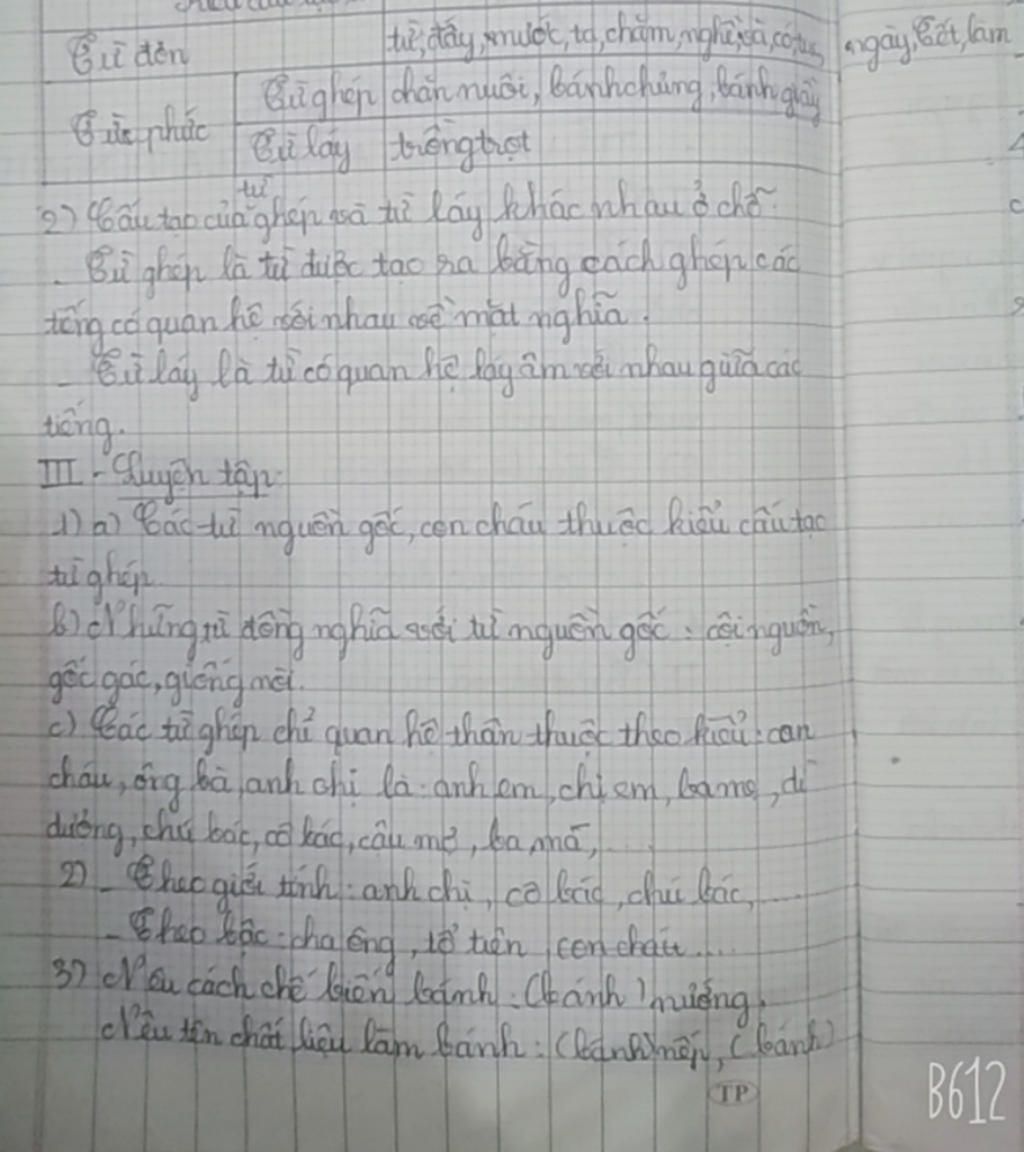 Từ đơn từ, đấy, nước, ta, chăm, nghề, và, có, tục, ngày, Tết, làm
Từ phức
Từ ghép chăn nuôi, bánh chưng, bánh giầy
Từ láy trồng trọt
2) Cấu tạo của từ ghép và từ láy khác nhau ở chỗ:
- Từ ghép là từ được tạo ra bằng cách ghép các
tiếng có quan hệ với nhau về mặt nghĩa.
- Từ láy là từ có quan hệ láy âm với nhau giữa các
tiếng.
III - Luyện tập:
1) a) Các từ nguồn gốc, con cháu thuộc kiểu cấu tạo
từ ghép.
b) Những từ đồng nghĩa với từ nguồn gốc: cội nguồn,
gốc gác, giống nòi.
c) Các từ ghép chỉ quan hệ thân thuộc theo kiểu: con
cháu, ông bà, anh chị là: anh em, chị em, ba mẹ, dì
dượng, chú bác, cô bác, cậu mợ, ba má,
2) - Theo giới tính: anh chị, cô bác, chú bác, ....
- Theo bậc: cha ông, tổ tiên, con cháu....
3) Nêu cách chế biến bánh: (bánh) nướng,
Nêu tên chất liệu làm bánh: (bánh) nếp, (bánh)
TP
B612